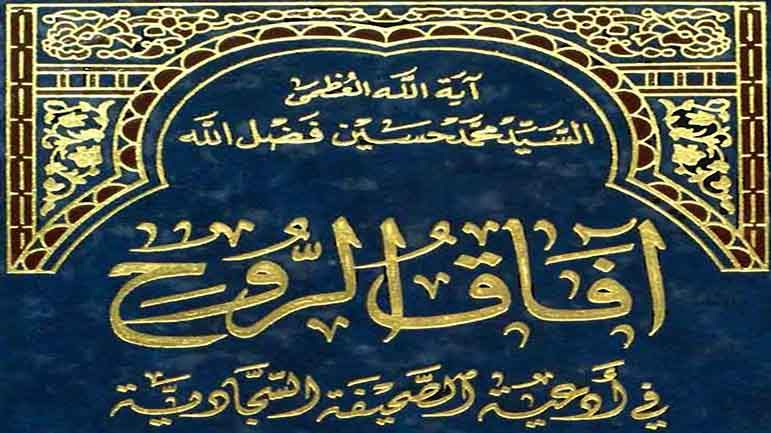 آية الله العظمى
السيد محمد حسين فضل الله
آفاق الروح
في أدعية الصحيفة السجادية